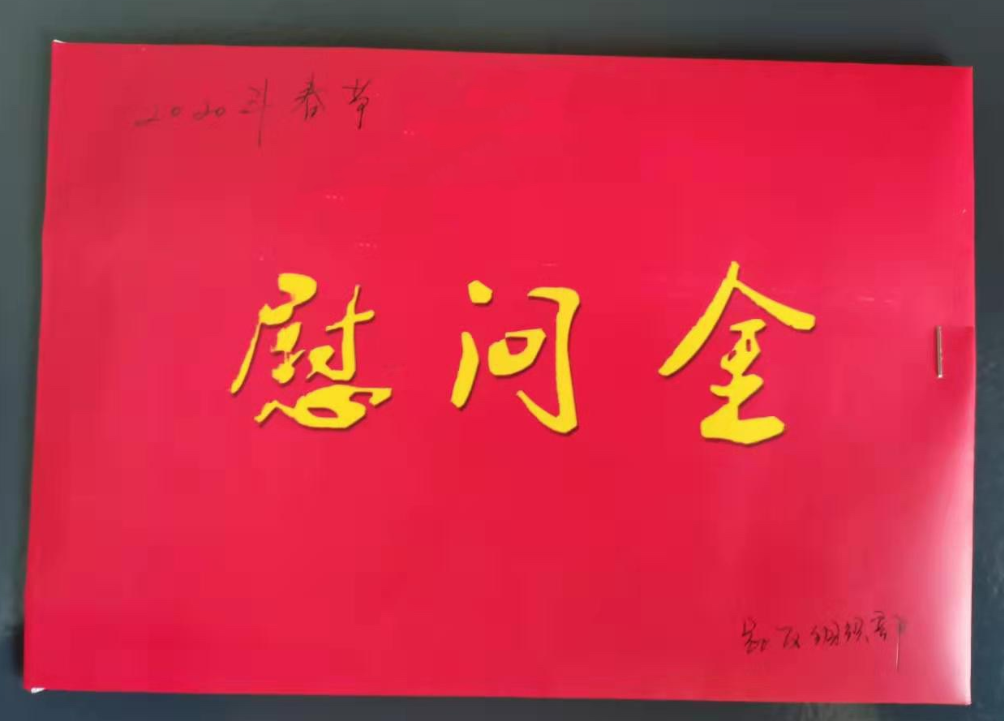 2020年春节
慰问金
组织部